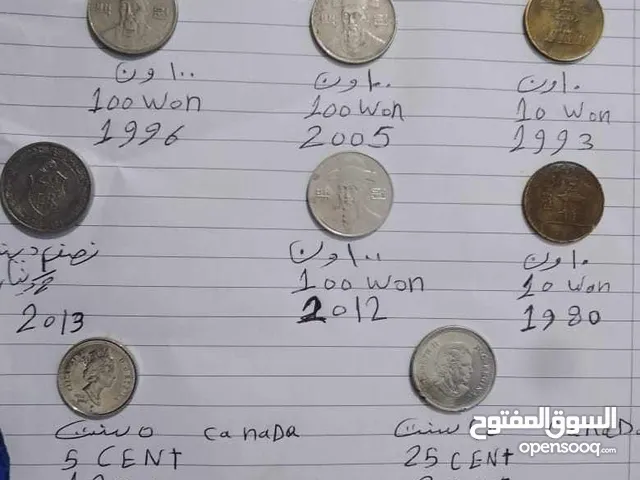 ١٠٠ ون
100 Won
1996
١٠٠ ون
100 Won
2005
١٠ ون
10 Won
1993
2013
١٠٠ ون
100 Won
2012
١٠ ون
10 Won
1980
٥ سنت canada
5 CENT
٢٥ سنت
25 CENT
السوق المفتوح
opensooq.com